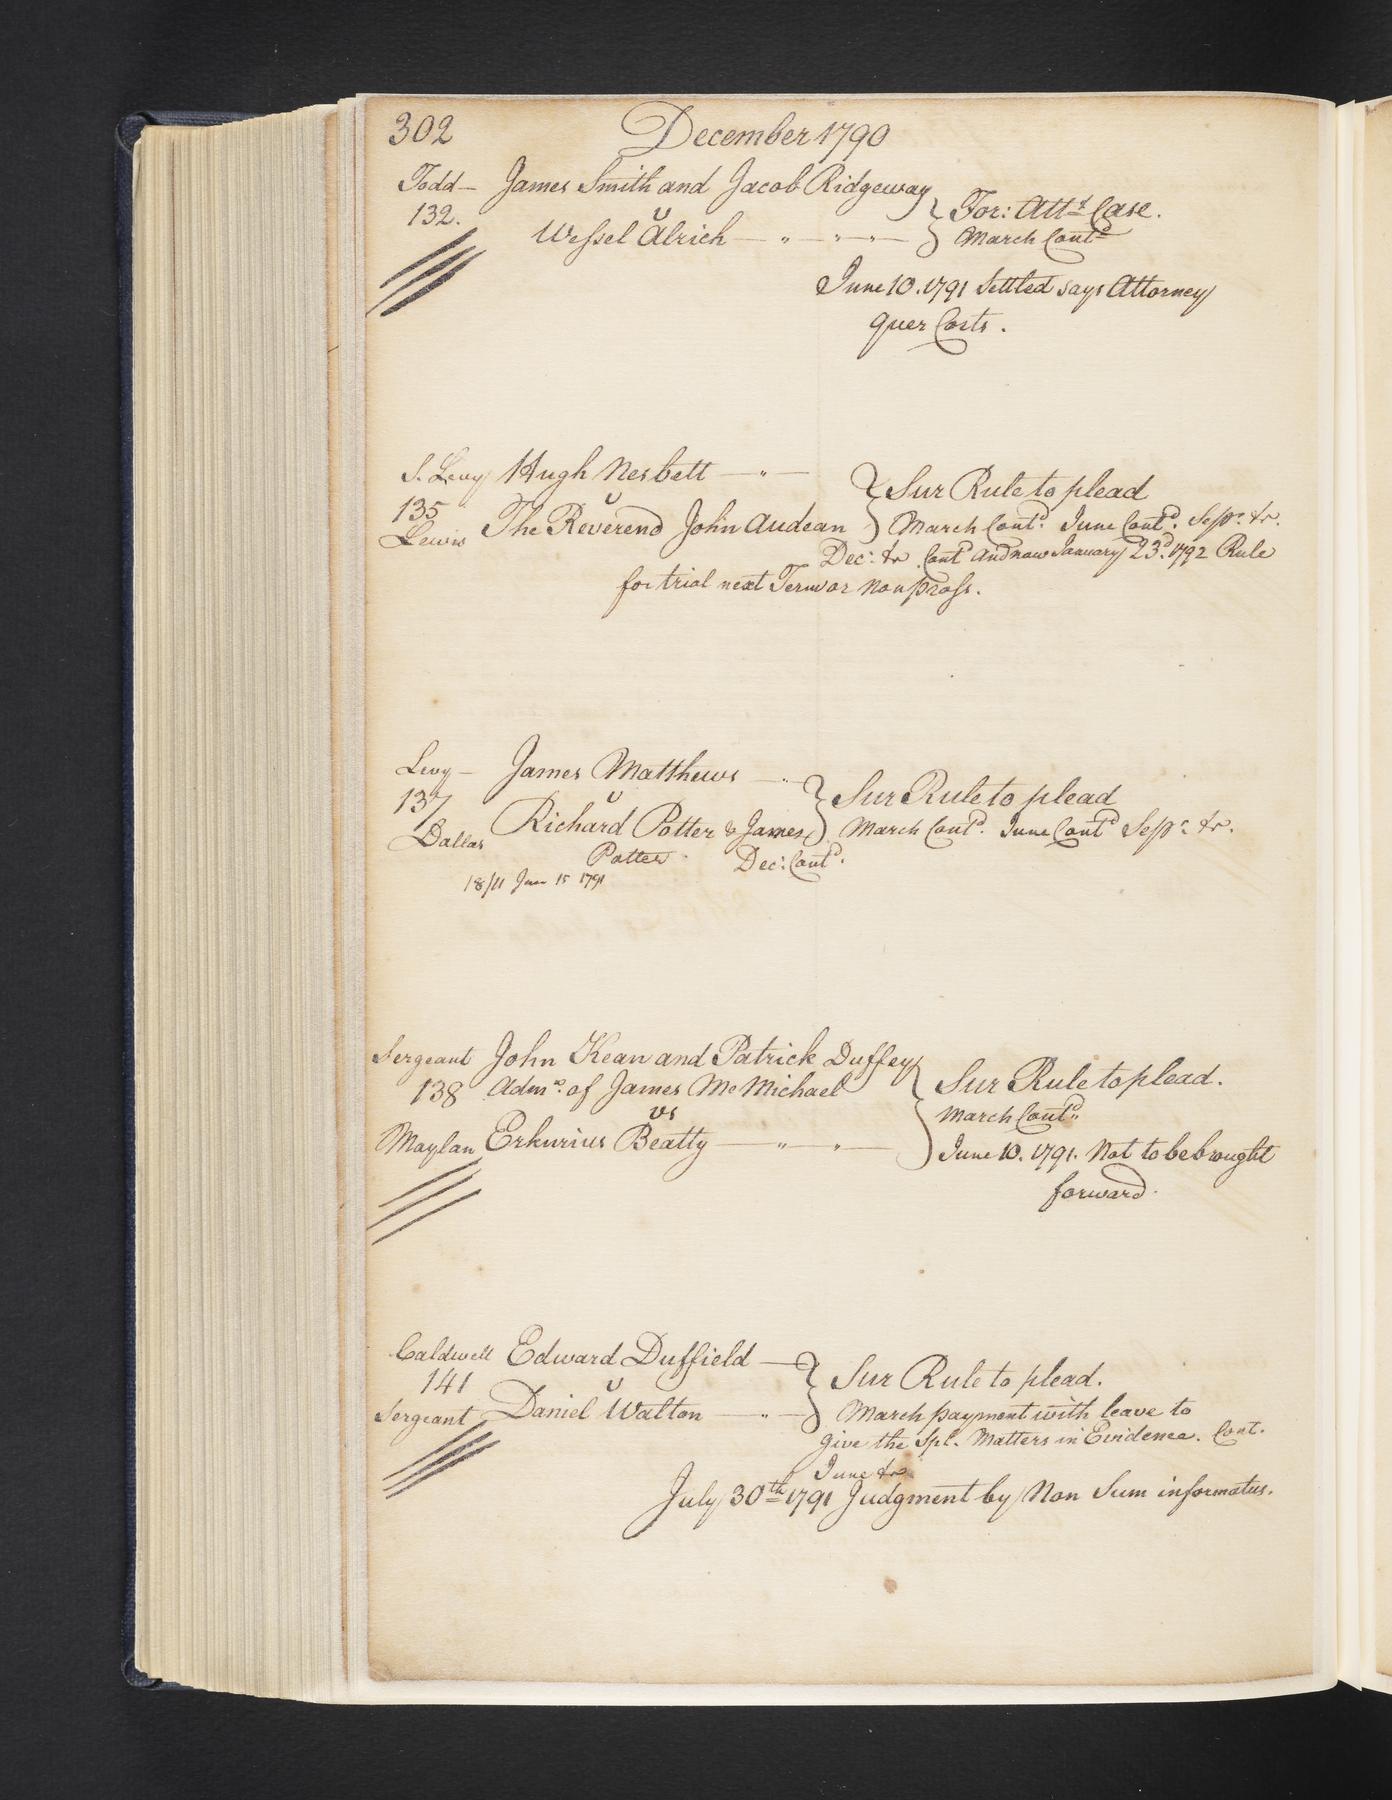 302 December 1790
Todd— James Smith and Jacob Ridgeway
132. v For: Attt. Case.
Wessel Alrich — „ — „ — „ — March Contd
June 10. 1791 Settled says Attorney
quer Costs.
S. Levy Hugh Nesbett — „ — Sur Rule to plead
135 v
Lewis The Reverend John Audean March Contd. June Contd. Sepr. &c.
Decr: &c Contd and now January 23d. 1792 Rule
for trial next Term or Non pross.
Levy — James Matthews — „ Sur Rule to plead
137 v
Dallas Richard Potter & James March Contd. June Contd Sepr. &c.
Potter. Decr: Contd.
18/11 June 15 1791
Sergeant John Kean and Patrick Duffey
138 Adms. of James McMichael Sur Rule to plead.
vs March Contd.
Maylan Erkurius Beatty — „ — „ — June 10. 1791. Not to be brought
forward.
Caldwell Edward Duffield — Sur Rule to plead.
141 v
Sergeant Daniel Walton — „ — March payment with leave to
give the Spl. Matters in Evidence. Cont.
June &c
July 30th 1791 Judgment by Non Sum informatus.